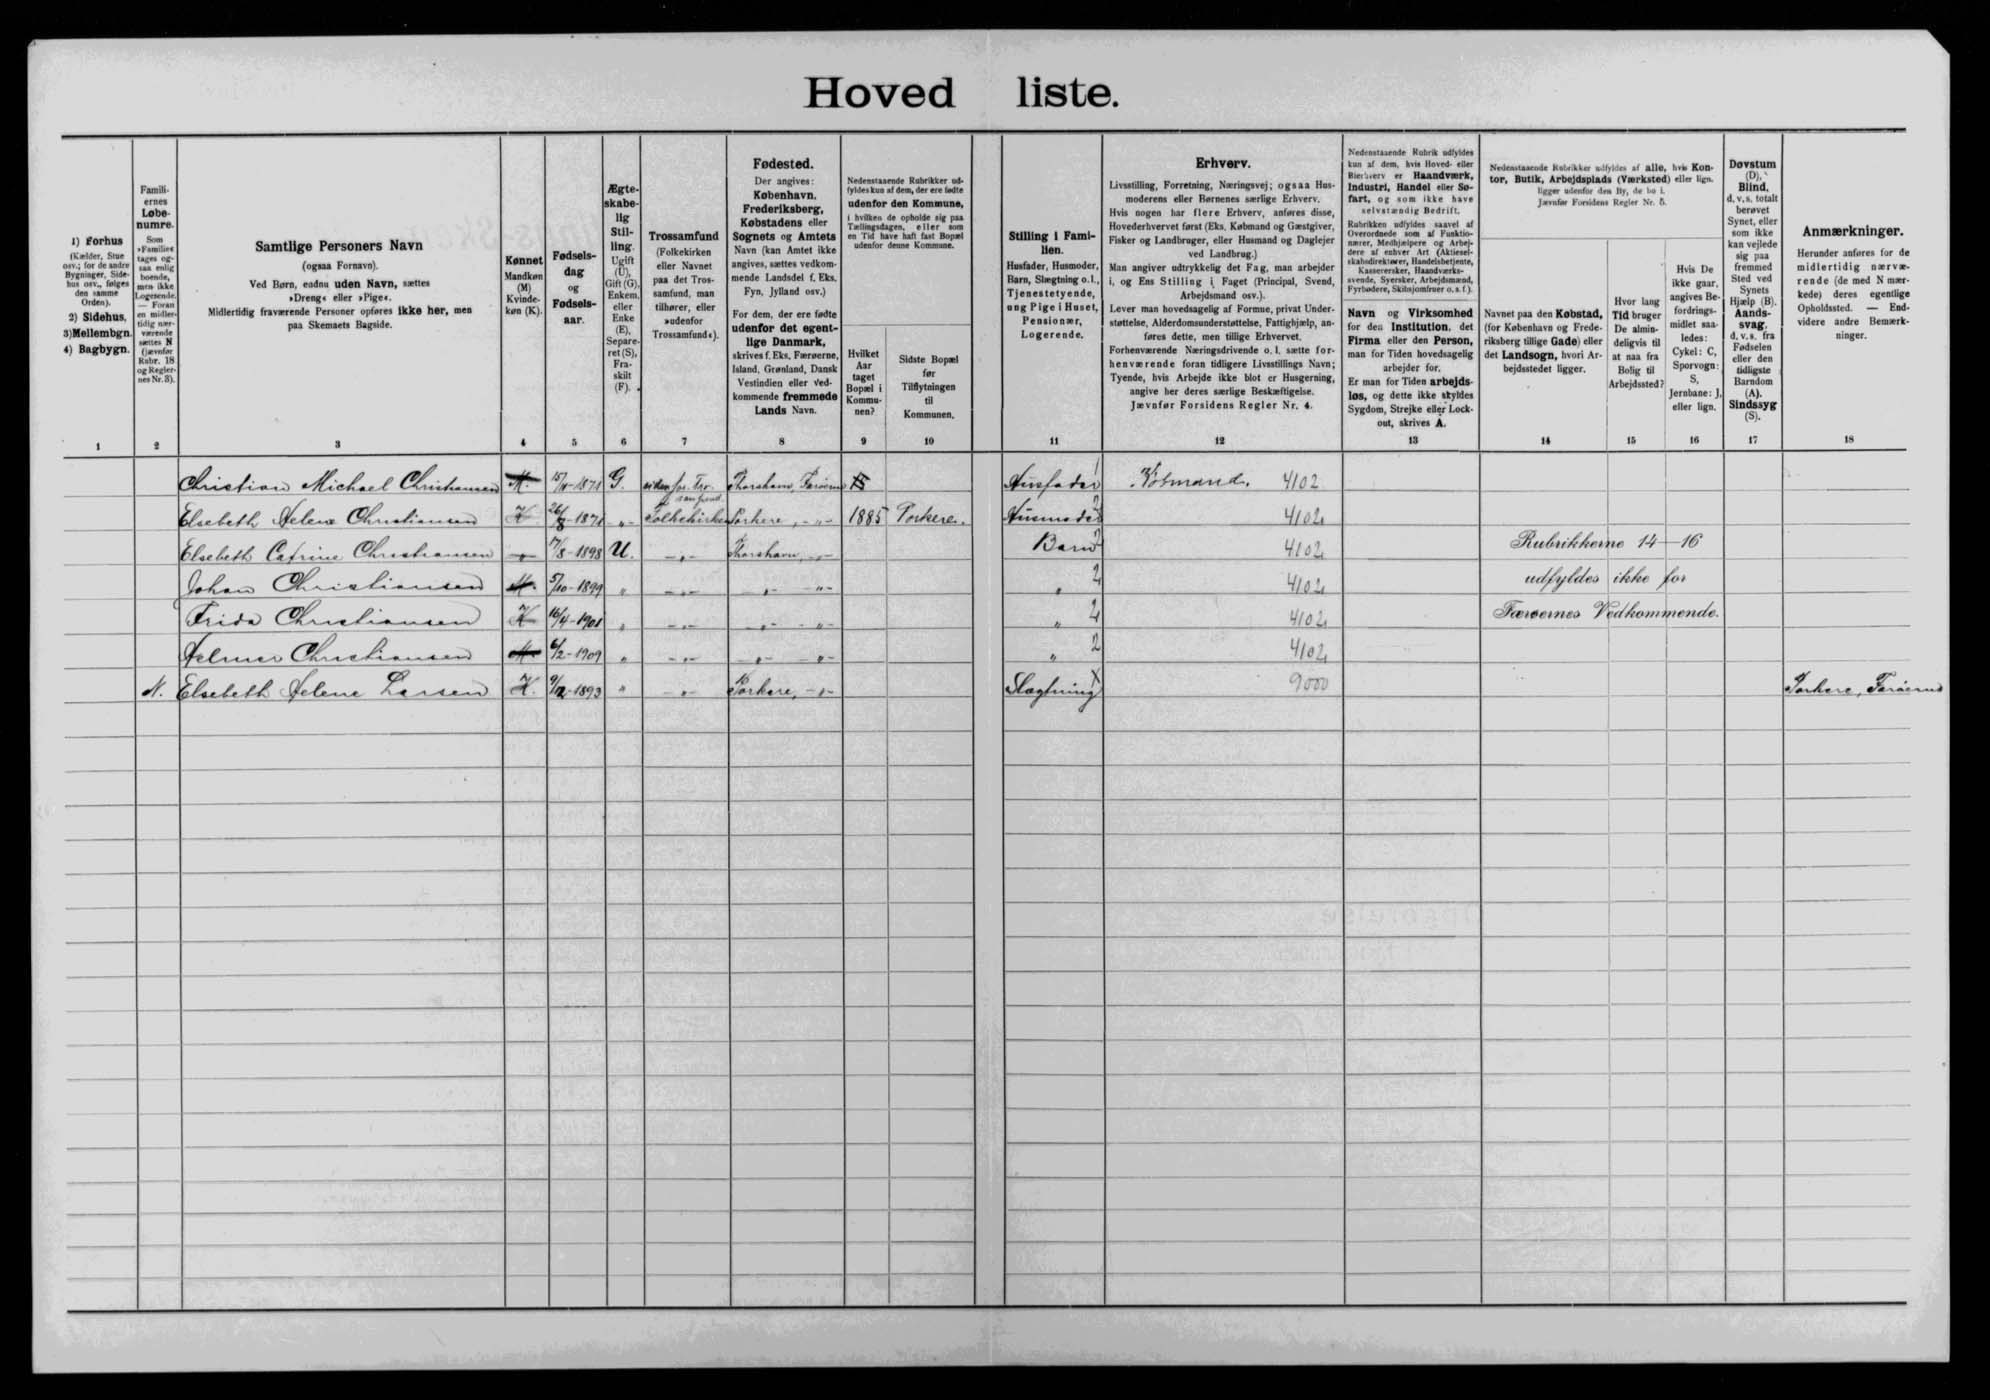 Hovedliste.
1) Forhus
(Kælder, Stue
osv.; for de andre
Bygninger, Side-
hus osv., følges
den samme
Orden).
2) Sidehus.
3) Mellembgn.
4) Bagbygn.
1
Famili-
ernes
Løbe-
numre.
Som
»Familie«
tages og-
saa enlig
boende,
men ikke
Logerende.
— Foran
en midler-
tidig nær-
værende
sættes N
(jævnfør
Rubr. 18
og Regler-
nes Nr. 3).
2
Samtlige Personers Navn
(ogsaa Fornavn).
Ved Børn, endnu uden Navn, sættes
»Dreng« eller »Pige«.
Midlertidig fraværende Personer opføres ikke her, men
paa Skemaets Bagside.
3
Kønnet
Mandkøn
(M)
Kvinde-
køn (K).
4
Fødsels-
dag
og
Fødsels-
aar.
5
Ægte-
skabe-
lig
Stil-
ling.
Ugift
(U),
Gift (G),
Enkem.
eller
Enke
(E),
Separe-
ret (S),
Fra-
skilt
(F).
6
Trossamfund
(Folkekirken
eller Navnet
paa det Tros-
samfund, man
tilhører, eller
»udenfor
Trossamfund«).
7
Fødested.
Der angives:
København,
Frederiksberg,
Købstadens eller
Sognets og Amtets
Navn (kan Amtet ikke
angives, sættes vedkom-
mende Landsdel f. Eks.
Fyn, Jylland osv.)
For dem, der ere fødte
udenfor det egent-
lige Danmark,
skrives f. Eks. Færøerne,
Island, Grønland, Dansk
Vestindien eller ved-
kommende fremmede
Lands Navn.
8
Nedenstaaende Rubrikker ud-
fyldes kun af dem, der ere fødte
udenfor den Kommune,
i hvilken de opholde sig paa
Tællingsdagen, eller som
en Tid have haft fast Bopæl
udenfor denne Kommune.
Hvilket
Aar
taget
Bopæl i
Kommu-
nen?
9
Sidste Bopæl
før
Tilflytningen
til
Kommunen.
10
Stilling i Fami-
lien.
Husfader, Husmoder,
Barn, Slægtning o.l.,
Tjenestetyende,
ung Pige i Huset,
Pensionær,
Logerende.
11
Erhverv.
Livsstilling, Forretning, Næringsvej; ogsaa Hus-
moderens eller Børnenes særlige Erhverv.
Hvis nogen har flere Erhverv, anføres disse,
Hovederhvervet først (Eks. Købmand og Gæstgiver,
Fisker og Landbruger, eller Husmand og Daglejer
ved Landbrug.)
Man angiver udtrykkelig det Fag, man arbejder
i, og Ens Stilling i Faget (Principal, Svend,
Arbejdsmand osv.).
Lever man hovedsagelig af Formue, privat Under-
støttelse, Alderdomsunderstøttelse, Fattighjælp, an-
føres dette, men tillige Erhvervet.
Forhenværende Næringsdrivende o. l. sætte for-
henværende foran tidligere Livsstillings Navn;
Tyende, hvis Arbejde ikke blot er Husgerning,
angive her deres særlige Beskæftigelse.
Jævnfør Forsidens Regler Nr. 4.
12
Nedenstaaende Rubrik udfyldes
kun af dem, hvis Hoved- eller
Bierhverv er Haandværk,
Industri, Handel eller Sø-
fart, og som ikke have
selvstændig Bedrift.
Rubrikken udfyldes saavel af
Overordnede som af Funktio-
nærer, Medhjælpere og Arbej-
dere af enhver Art (Aktiesel-
skabsdirektører, Handelsbetjente,
Kassererersker, Haandværks-
svende, Syersker, Arbejdsmænd,
Fyrbødere, Skibsjomfruer o. s. f.).
Navn og Virksomhed
for den Institution, det
Firma eller den Person,
man for Tiden hovedsagelig
arbejder for.
Er man for Tiden arbejds-
løs, og dette ikke skyldes
Sygdom, Strejke eller Lock-
out, skrives A.
13
Nedenstaaende Rubrikker udfyldes af alle, hvis Kon-
tor, Butik, Arbejdsplads (Værksted) eller lign.
ligger udenfor den By, de bo i.
Jævnfør Forsidens Regler Nr. 5.
Navnet paa den Købstad,
(for København og Frede-
riksberg tillige Gade) eller
det Landsogn, hvori Ar-
bejdsstedet ligger.
14
Hvor lang
Tid bruger
De almin-
deligvis til
at naa fra
Bolig til
Arbejdssted?
15
Hvis De
ikke gaar,
angives Be-
fordrings-
midlet saa-
ledes:
Cykel: C,
Sporvogn:
S,
Jernbane: J,
eller lign.
16
Døvstum
(D),
Blind,
d. v. s. totalt
berøvet
Synet, eller
som ikke
kan vejlede
sig paa
fremmed
Sted ved
Synets
Hjælp (B).
Aands-
svag,
d. v. s. fra
Fødselen
eller den
tidligste
Barndom
(A).
Sindssyg
(S).
17
Anmærkninger.
Herunder anføres for de
midlertidig nærvæ-
rende (de med N mær-
kede) deres egentlige
Opholdssted. — End-
videre andre Bemærk-
ninger.
18
Christian Michael Christiansen M. 15/11-1871 G. uden for Tro- samfund. Thorshavn, Færøerne Husfader 1 Købmand. 4102
Elsebeth Helene Christiansen K. -"- Folkekirken Porkere, -"- 1885 Porkere. Husmoder 2 4102
Elsebeth Catrine Christiansen -"- 17/8-1898 U. -"- Thorshavn, -"- Barn 2 4102 Rubrikkerne 14-16
Johan Christiansen M. 5/10-1899 " -"- -"- -"- " 2 4102 udfyldes ikke for
Frida Christiansen K 16/4-1901 " -"- -"- -"- " 2 4102 Færøernes Vedkommende.
Helmer Christiansen M. 6/2-1909 " -"- -"- -"- " 2 4102
N. Elsebeth Helene Larsen K. 9/12-1893 " -"- Porkere, -"- Slægtning X 9000 Porkere, Færøerne